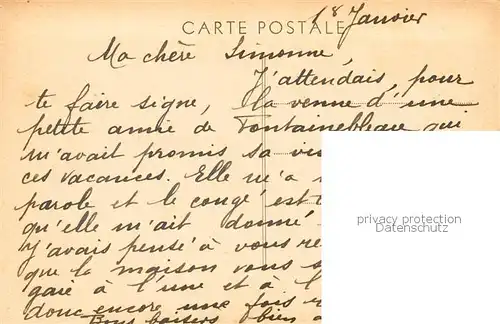 CARTE POSTALE
18 Janvier
Ma chère Simonne,
J'attendais, pour
te faire signe, la venue d'une
petite amie de Fontainebleau qui
m'avait promis sa
ces vacances. Elle m'a
parole et le congé, est
qu'elle m'ait donné
J'avais pensé à vous
que la maison vous
gaie à l'une et à l'
donc encore une fois
Bons baisers bien
privacy protection
Datenschutz